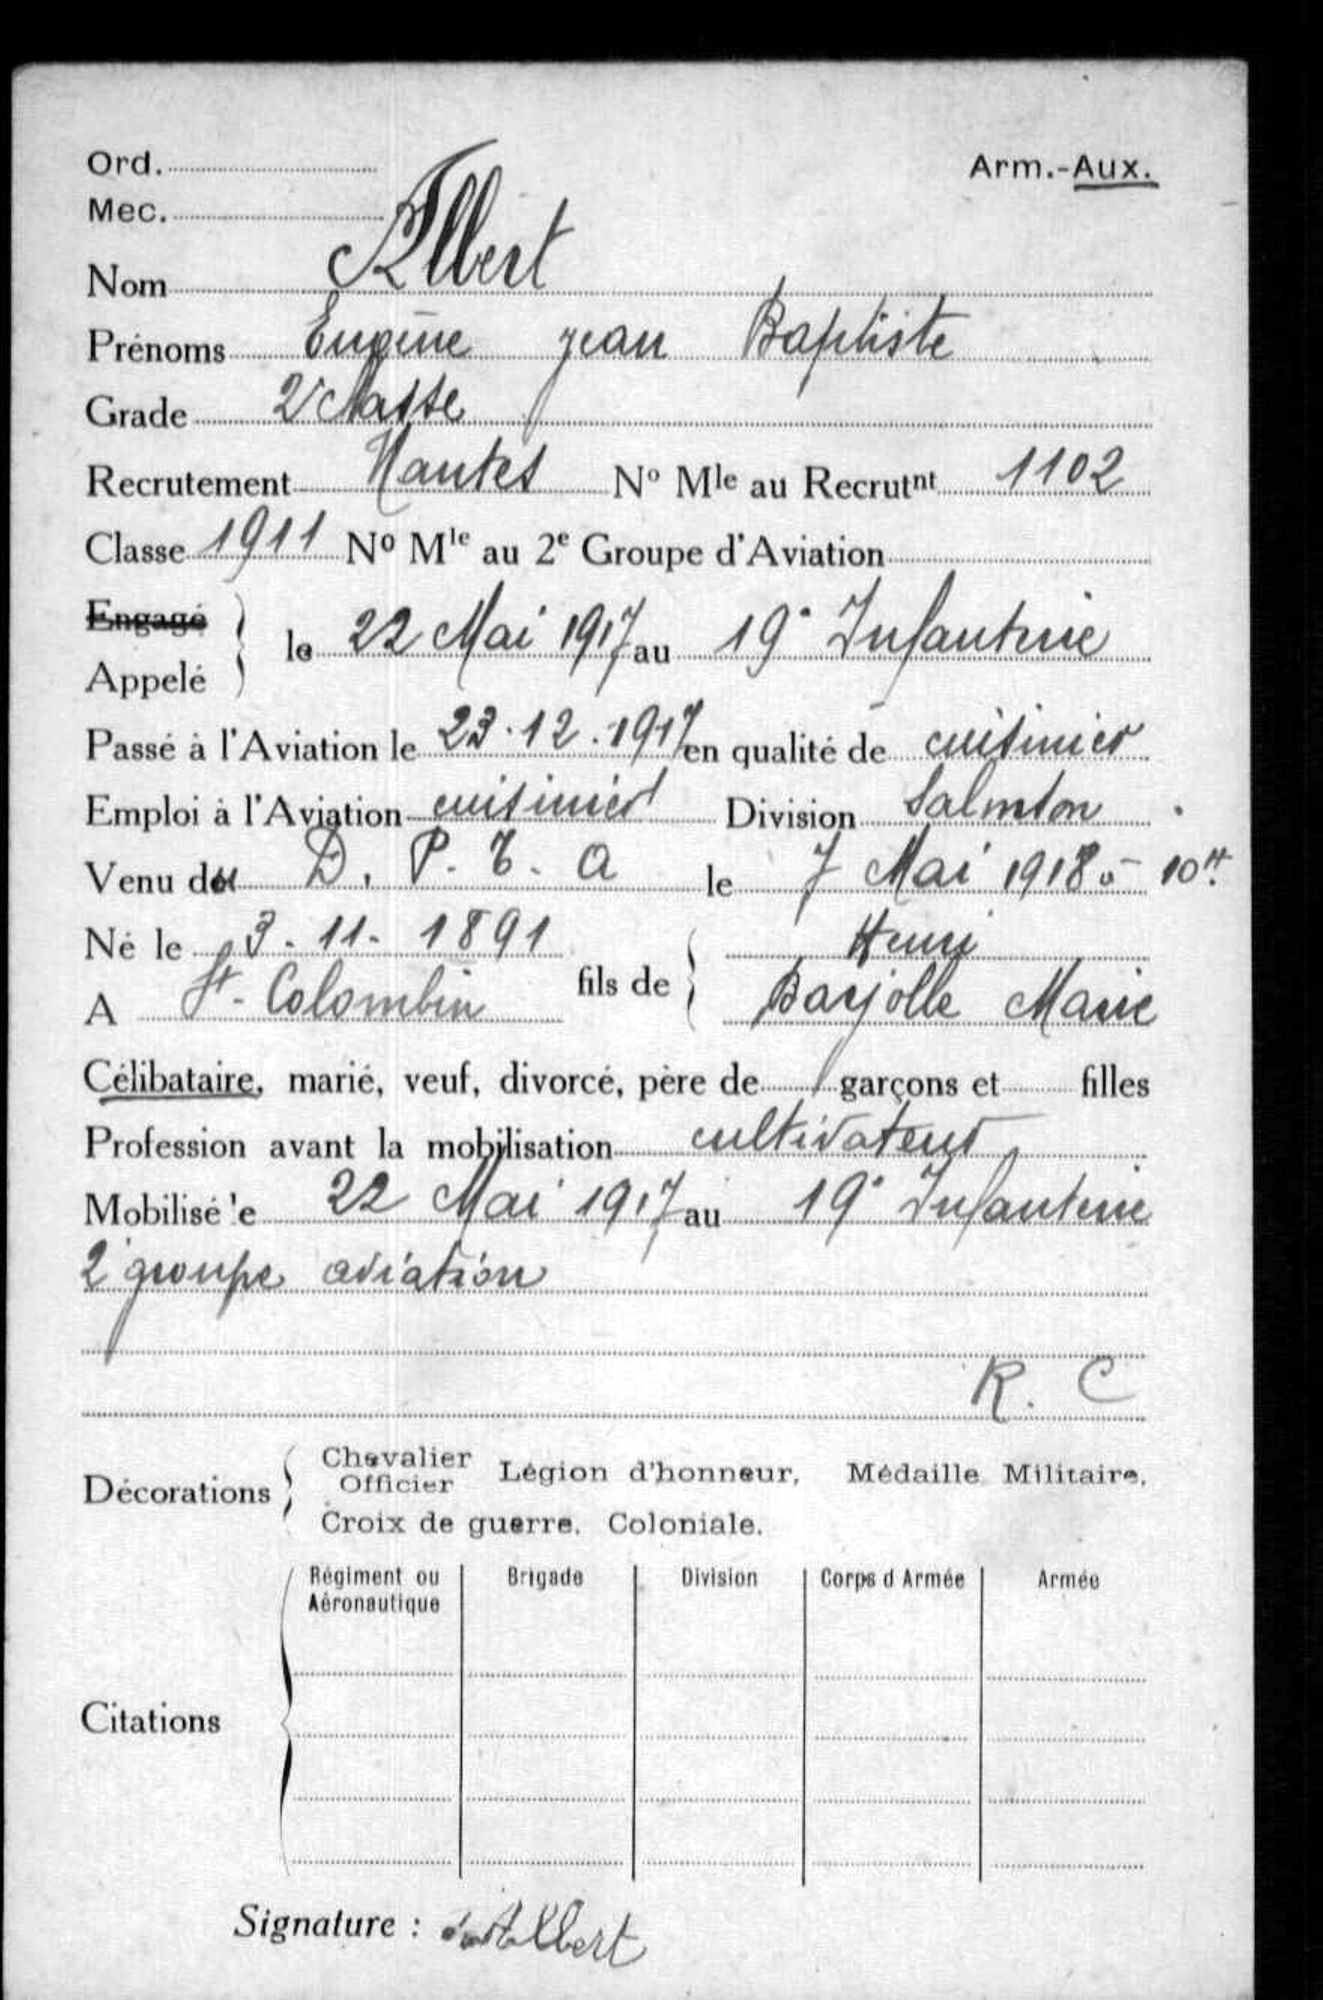 Ord.
Arm.-Aux.
Mec.
Nom Albert
Prénoms Eugène Jean Baptiste
Grade 2e classe
Recrutement Nantes No Mle au Recrutnt 1102
Classe 1911 No Mle au 2e Groupe d'Aviation
Engagé
Appelé
le 22 Mai 1917 au 19e Infanterie
Passé à l'Aviation le 23.12.1917 en qualité de cuisinier
Emploi à l'Aviation cuisinier Division Salmson
Venu du D. P. T. A le 7 Mai 1918
Né le 3-11-1891 fils de Henri
A St-Colombin Barjolle Marie
Célibataire, marié, veuf, divorcé, père de / garçons et filles
Profession avant la mobilisation cultivateur
Mobilisé le 22 Mai 1917 au 19e Infanterie
2e groupe aviation
R. C
Décorations Chevalier Officier Légion d'honneur, Médaille Militaire,
Croix de guerre, Coloniale.
Citations
Régiment ou Aéronautique Brigade Division Corps d'Armée Armée
Signature : Albert